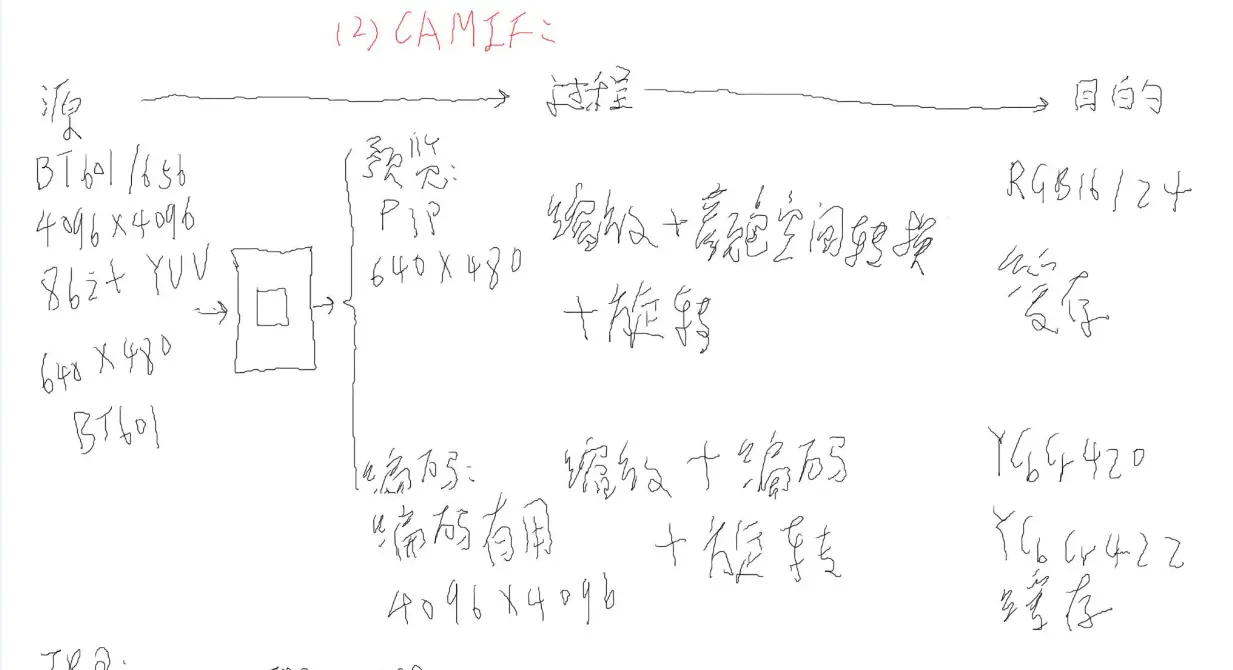 (2) CAMIF:
源 过程 目的
BT601/656
4096X4096
8位 YUV
640X480
BT601
预览:
PIP
640X480
缩放+颜色空间转换
+旋转
RGB16/24
缓存
编码:
编码有用
4096X4096
缩放+编码
+旋转
YCbCr420
YCbCr422
缓存